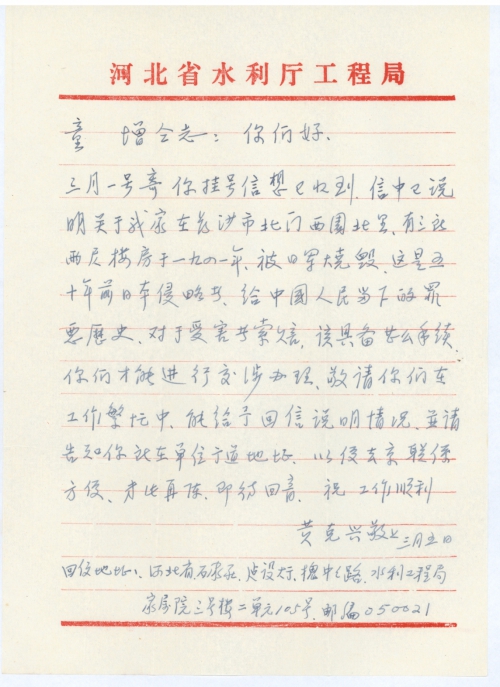 河北省水利厅工程局
童 增仝志：你们好.
三月一号寄你挂号信想已收到，信中已说
明关于我家在长沙市北门西園北里，有三栋
两层楼房于一九四一年，被日军燒毁，这是五
十年前日本侵略者，给中國人民当下的罪
恶歷史．对于受害者索赔，该具备什么手续，
你们才能进行交涉办理，敬请你们在
工作繁忙中，能给予回信说明情况，並请
告知你所在单位于道地址．以便去京联係
方便．专此再陈．即待回音．祝 工作顺利
黄克兴敬上 三月五日
回信地址：河北省石家庄 建设大街 槐中路．水利工程局
家属院三号楼二单元105号．邮编050021